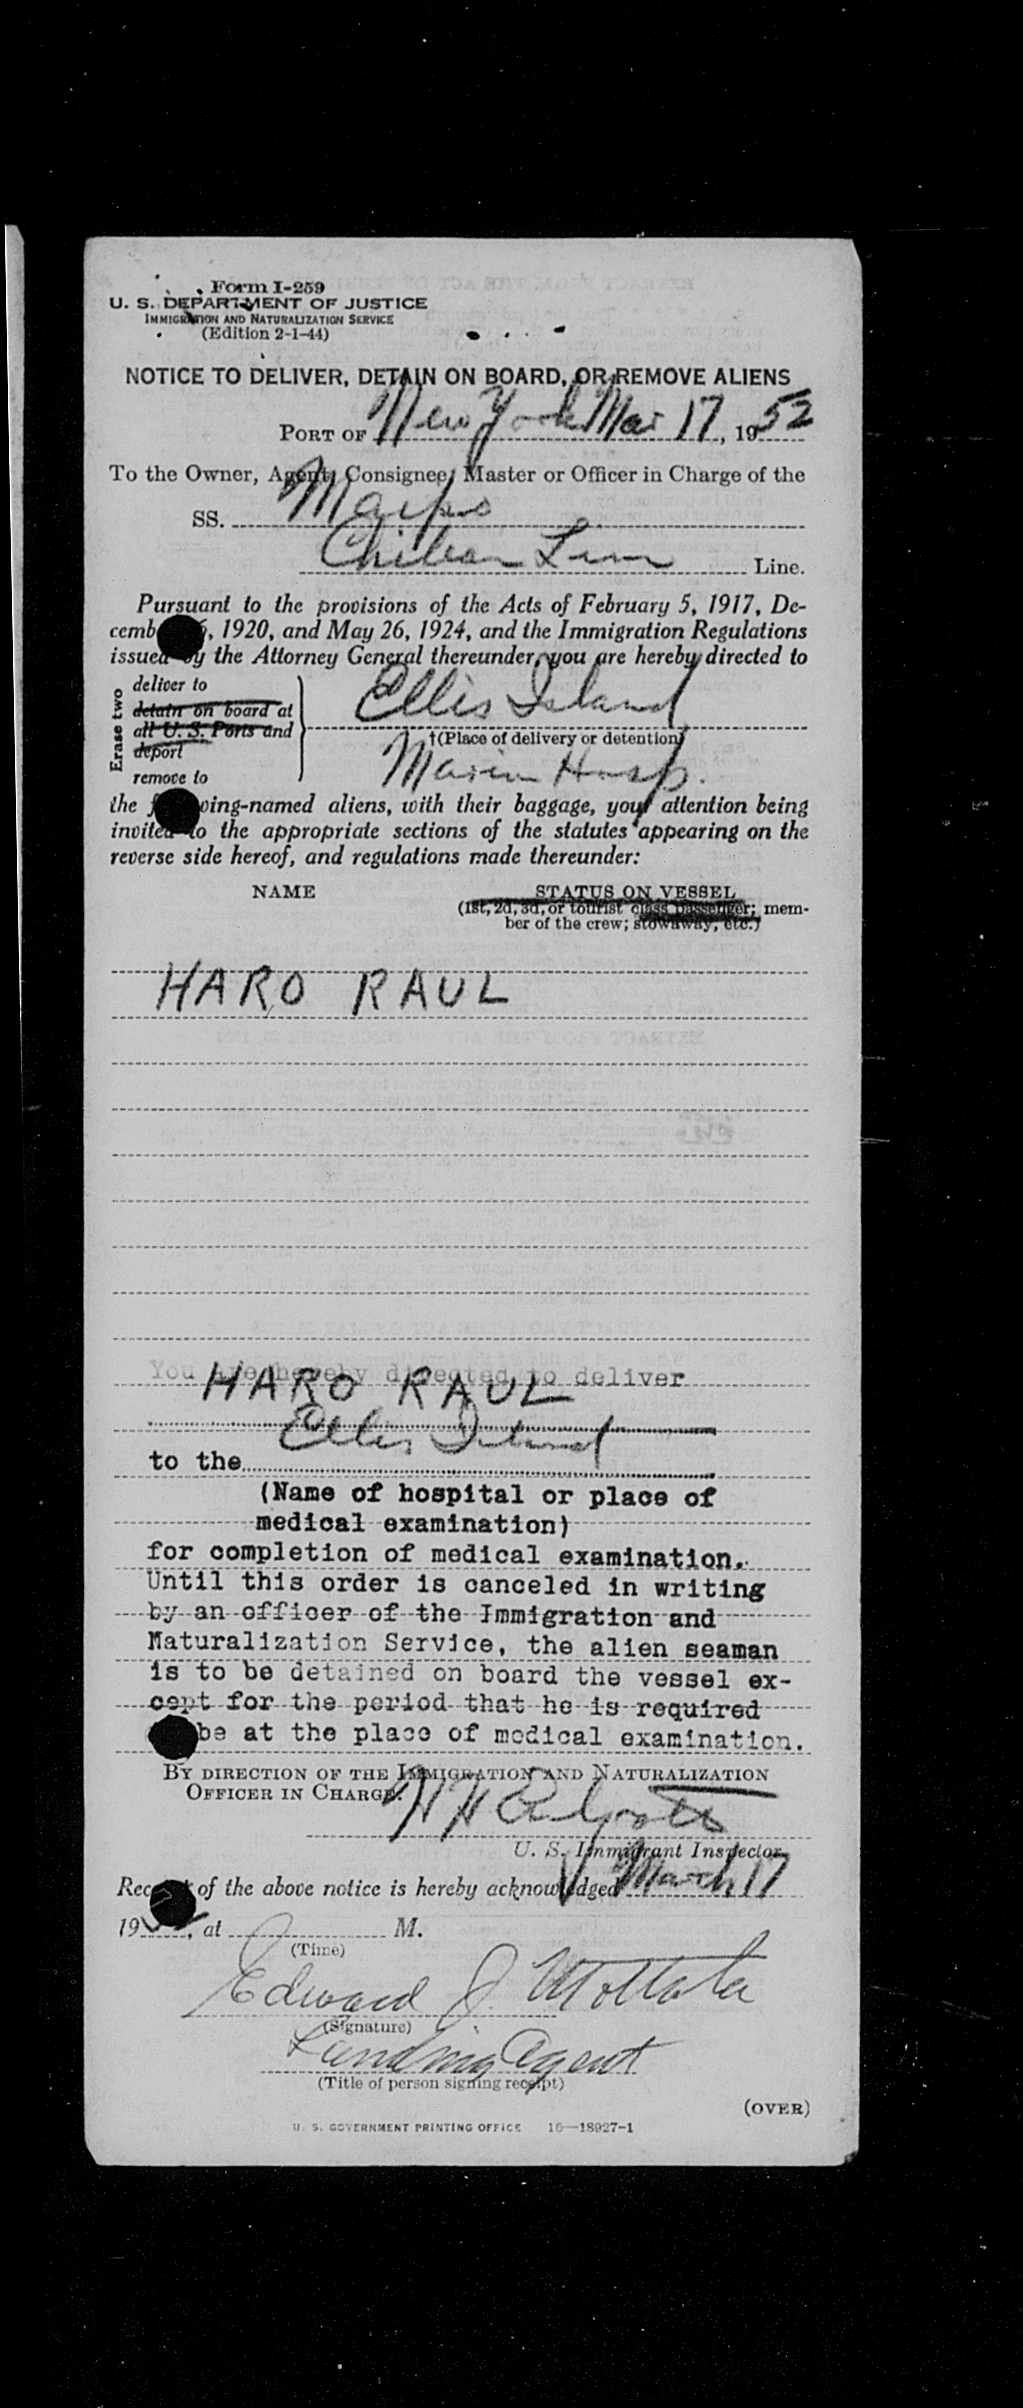 Form I-259
U. S. DEPARTMENT OF JUSTICE
IMMIGRATION AND NATURALIZATION SERVICE
(Edition 2-1-44)
NOTICE TO DELIVER, DETAIN ON BOARD, OR REMOVE ALIENS
PORT OF New York Mar 17, 1952
To the Owner, Agent, Consignee, Master or Officer in Charge of the
SS.
Chilean Line Line.
Pursuant to the provisions of the Acts of February 5, 1917, De-
cemb 6, 1920, and May 26, 1924, and the Immigration Regulations
issued by the Attorney General thereunder, you are hereby directed to
Erase two
deliver to
detain on board at
all U. S. Ports and
deport
remove to
Ellis Island
†(Place of delivery or detention)
Marine Hosp.
the f wing-named aliens, with their baggage, your attention being
invited to the appropriate sections of the statutes appearing on the
reverse side hereof, and regulations made thereunder:
NAME STATUS ON VESSEL
(1st, 2d, 3d, or tourist class passenger; mem-
ber of the crew; stowaway, etc.)
HARO RAUL
You are hereby directed to deliver
HARO RAUL
to the Ellis Island
(Name of hospital or place of
medical examination)
for completion of medical examination.
Until this order is canceled in writing
by an officer of the Immigration and
Naturalization Service, the alien seaman
is to be detained on board the vessel ex-
cept for the period that he is required
be at the place of medical examination.
BY DIRECTION OF THE IMMIGRATION AND NATURALIZATION
OFFICER IN CHARGE.
U. S. Immigrant Inspector.
Receipt of the above notice is hereby acknowledged March 17
19 , at M.
(Time)
Edward J.
(Signature)
Landing Agent
(Title of person signing receipt)
(OVER)
U. S. GOVERNMENT PRINTING OFFICE 16—18927-1